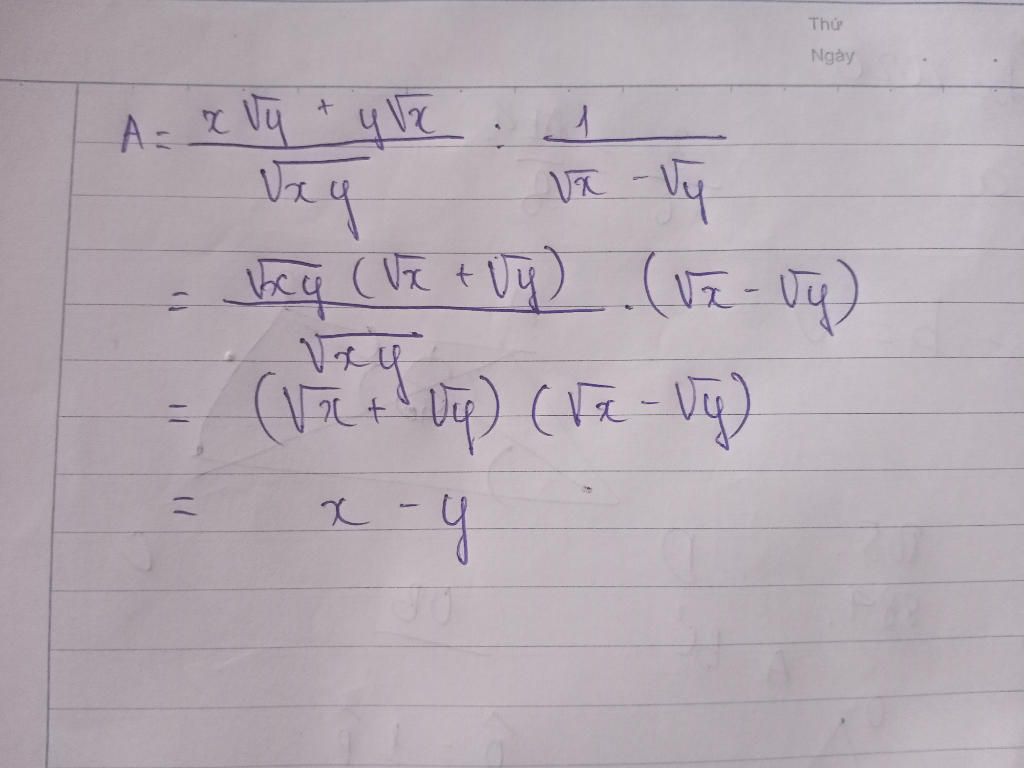 Thứ
Ngày
A = \frac{x\sqrt{y} + y\sqrt{x}}{\sqrt{xy}} : \frac{1}{\sqrt{x} - \sqrt{y}}
= \frac{\sqrt{xy} (\sqrt{x} + \sqrt{y})}{\sqrt{xy}} . (\sqrt{x} - \sqrt{y})
= (\sqrt{x} + \sqrt{y}) (\sqrt{x} - \sqrt{y})
= x - y